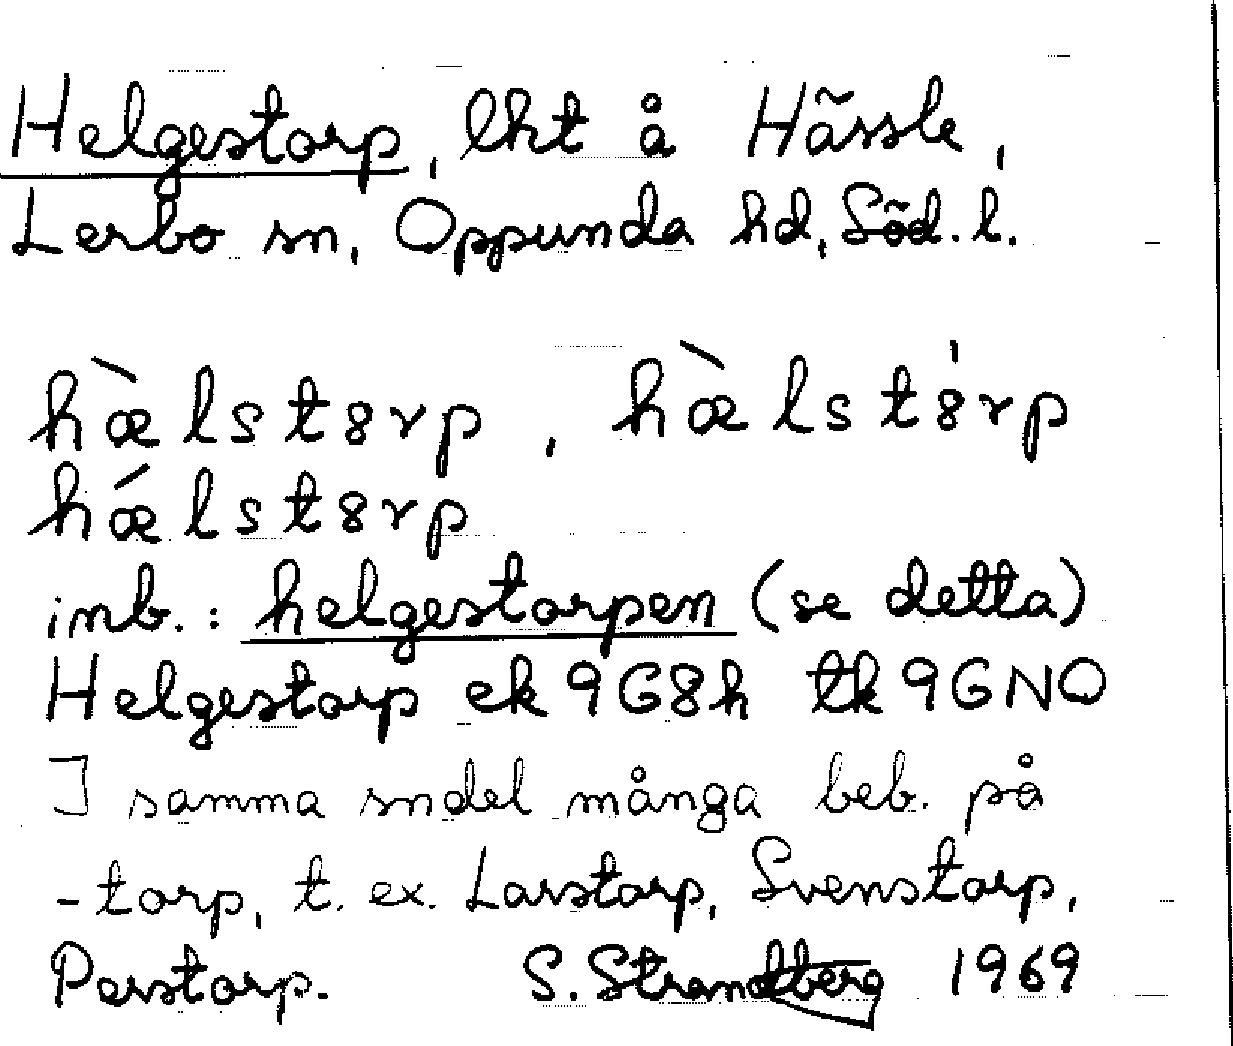 Helgestorp, lht å Hässle,
Lerbo sn, Oppunda hd, Söd. l.
hæ̀lst8rp, hæ̀lst8̍rp
hǽlst8rp
inb.: helgestorpen (se detta)
Helgestorp ek 9G8h tk 9GNO
I samma sndel många beb. på
-torp, t. ex. Larstorp, Svenstorp,
Perstorp. S. Strandberg 1969